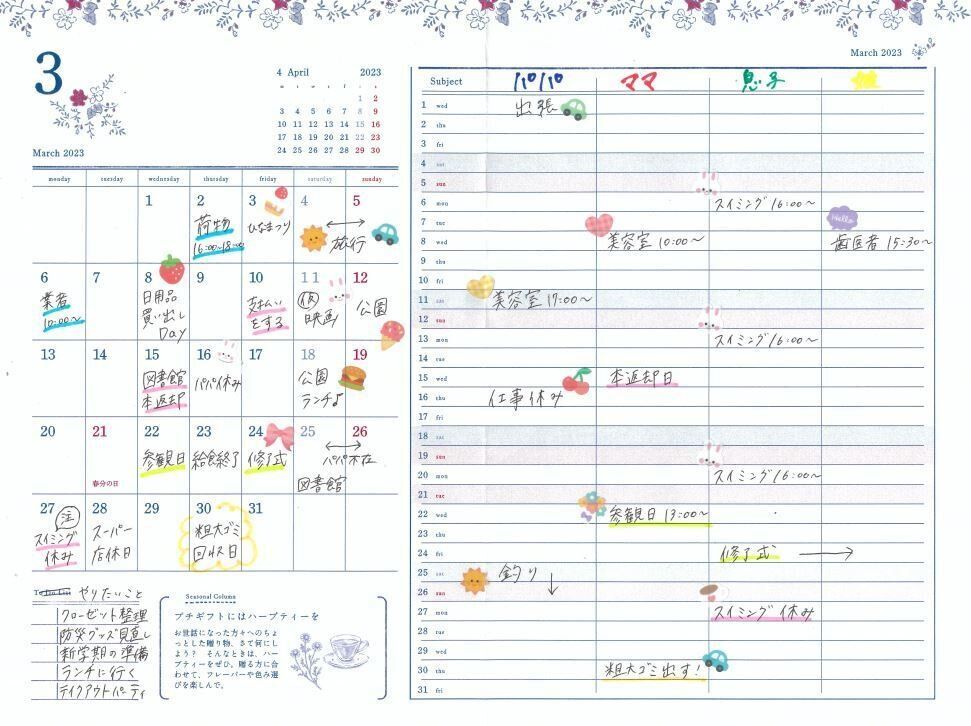 3
March 2023
4 April 2023
1 2
3 4 5 6 7 8 9
10 11 12 13 14 15 16
17 18 19 20 21 22 23
24 25 26 27 28 29 30
monday tuesday wednesday thursday friday saturday sunday
1 2 3 4 5
荷物
16:00~18:00
ひなまつり
旅行
6 7 8 9 10 11 12
業者
10:00~
日用品
買い出し
Day
支払い
をする
(仮)
映画
公園
13 14 15 16 17 18 19
図書館
本返却
パパ休み
公園
ランチ♪
20 21 22 23 24 25 26
春分の日
参観日
給食終了
修了式
パパ不在
図書館
27 28 29 30 31
注
スイミング
休み
スーパー
店休日
粗大ゴミ
回収日
To Do List やりたいこと
クローゼット整理
防災グッズ見直し
新学期の準備
ランチに行く
テイクアウトパーティ
Seasonal Column
プチギフトにはハーブティーを
お世話になった方々へのちょ
っとした贈り物、さて何にし
よう？ そんなときは、ハー
ブティーをぜひ。贈る方に合
わせて、フレーバーや色み選
びを楽しんで。
March 2023
Subject パパ ママ 息子 娘
1 wed 出張
2 thu
3 fri
4 sat
5 sun
6 mon スイミング 16:00~
7 tue Hello
8 wed 美容室 10:00~ 歯医者 15:30~
9 thu
10 fri
11 sat 美容室 17:00~
12 sun
13 mon スイミング 16:00~
14 tue
15 wed 本返却日
16 thu 仕事休み
17 fri
18 sat
19 sun
20 mon スイミング 16:00~
21 tue
22 wed 参観日 13:00~
23 thu
24 fri 修了式 →
25 sat 釣り ↓
26 sun
27 mon スイミング 休み
28 tue
29 wed
30 thu 粗大ゴミ出す!
31 fri